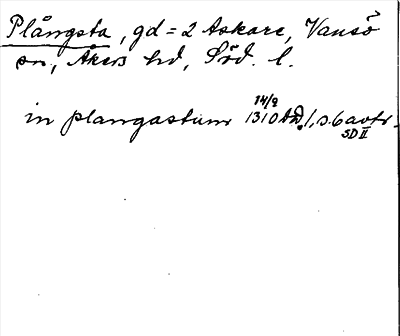 Plångsta, gd = 2 Askare, Vansö
sn, Åkers hd, Söd. l.
14/9
in plangastum 1310 s. 6 avtr.
SD II